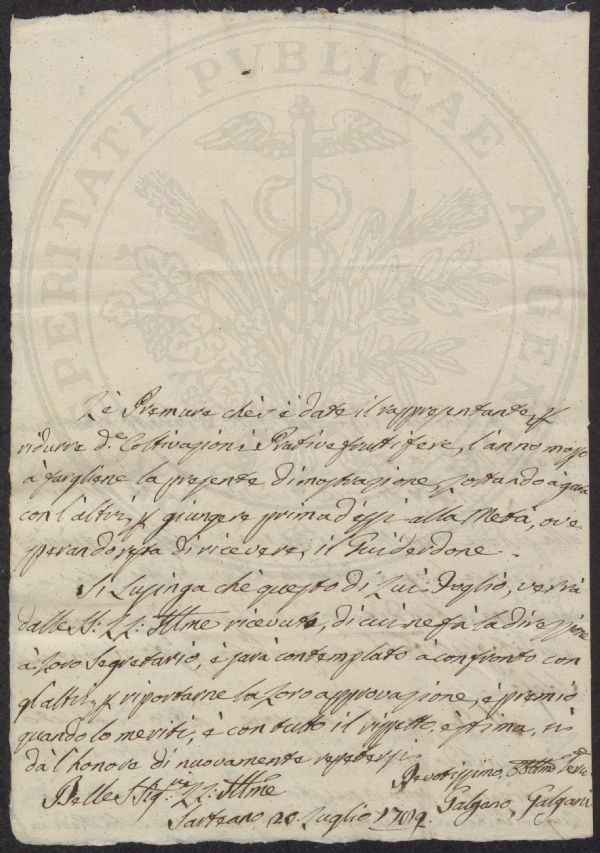 PROSPERITATI PUBLICAE AUGENDAE
Lè Premure chè s'è date il rappresentante, p
ridurre d.e Coltivazioni Prative fruttifere, l'anno mosso
à fargliene la presente Dimostrazione, portando à gara
con l'altri, p giungere prima d'essi alla Metà, ove
sperando di ricevere, il Guiderdone.
Si Lusinga chè questo di Lui Foglio, verrà
dalle SS: LL: Illme ricevuto, di cui ne fà la direzzione
à Loro Segretario, è sarà contemplato à confronto con
gl'altri, p riportarne la Loro approvazione, è premio
quando lo meriti, è con tutto il rispetto, è stima, si
dà l'honore di nuovamente repetersi
Delle SSig.rie LL: Illme
Devotissimo, Obblmo Serv
Sarteano 20. Luglio
Galgano, Galgani